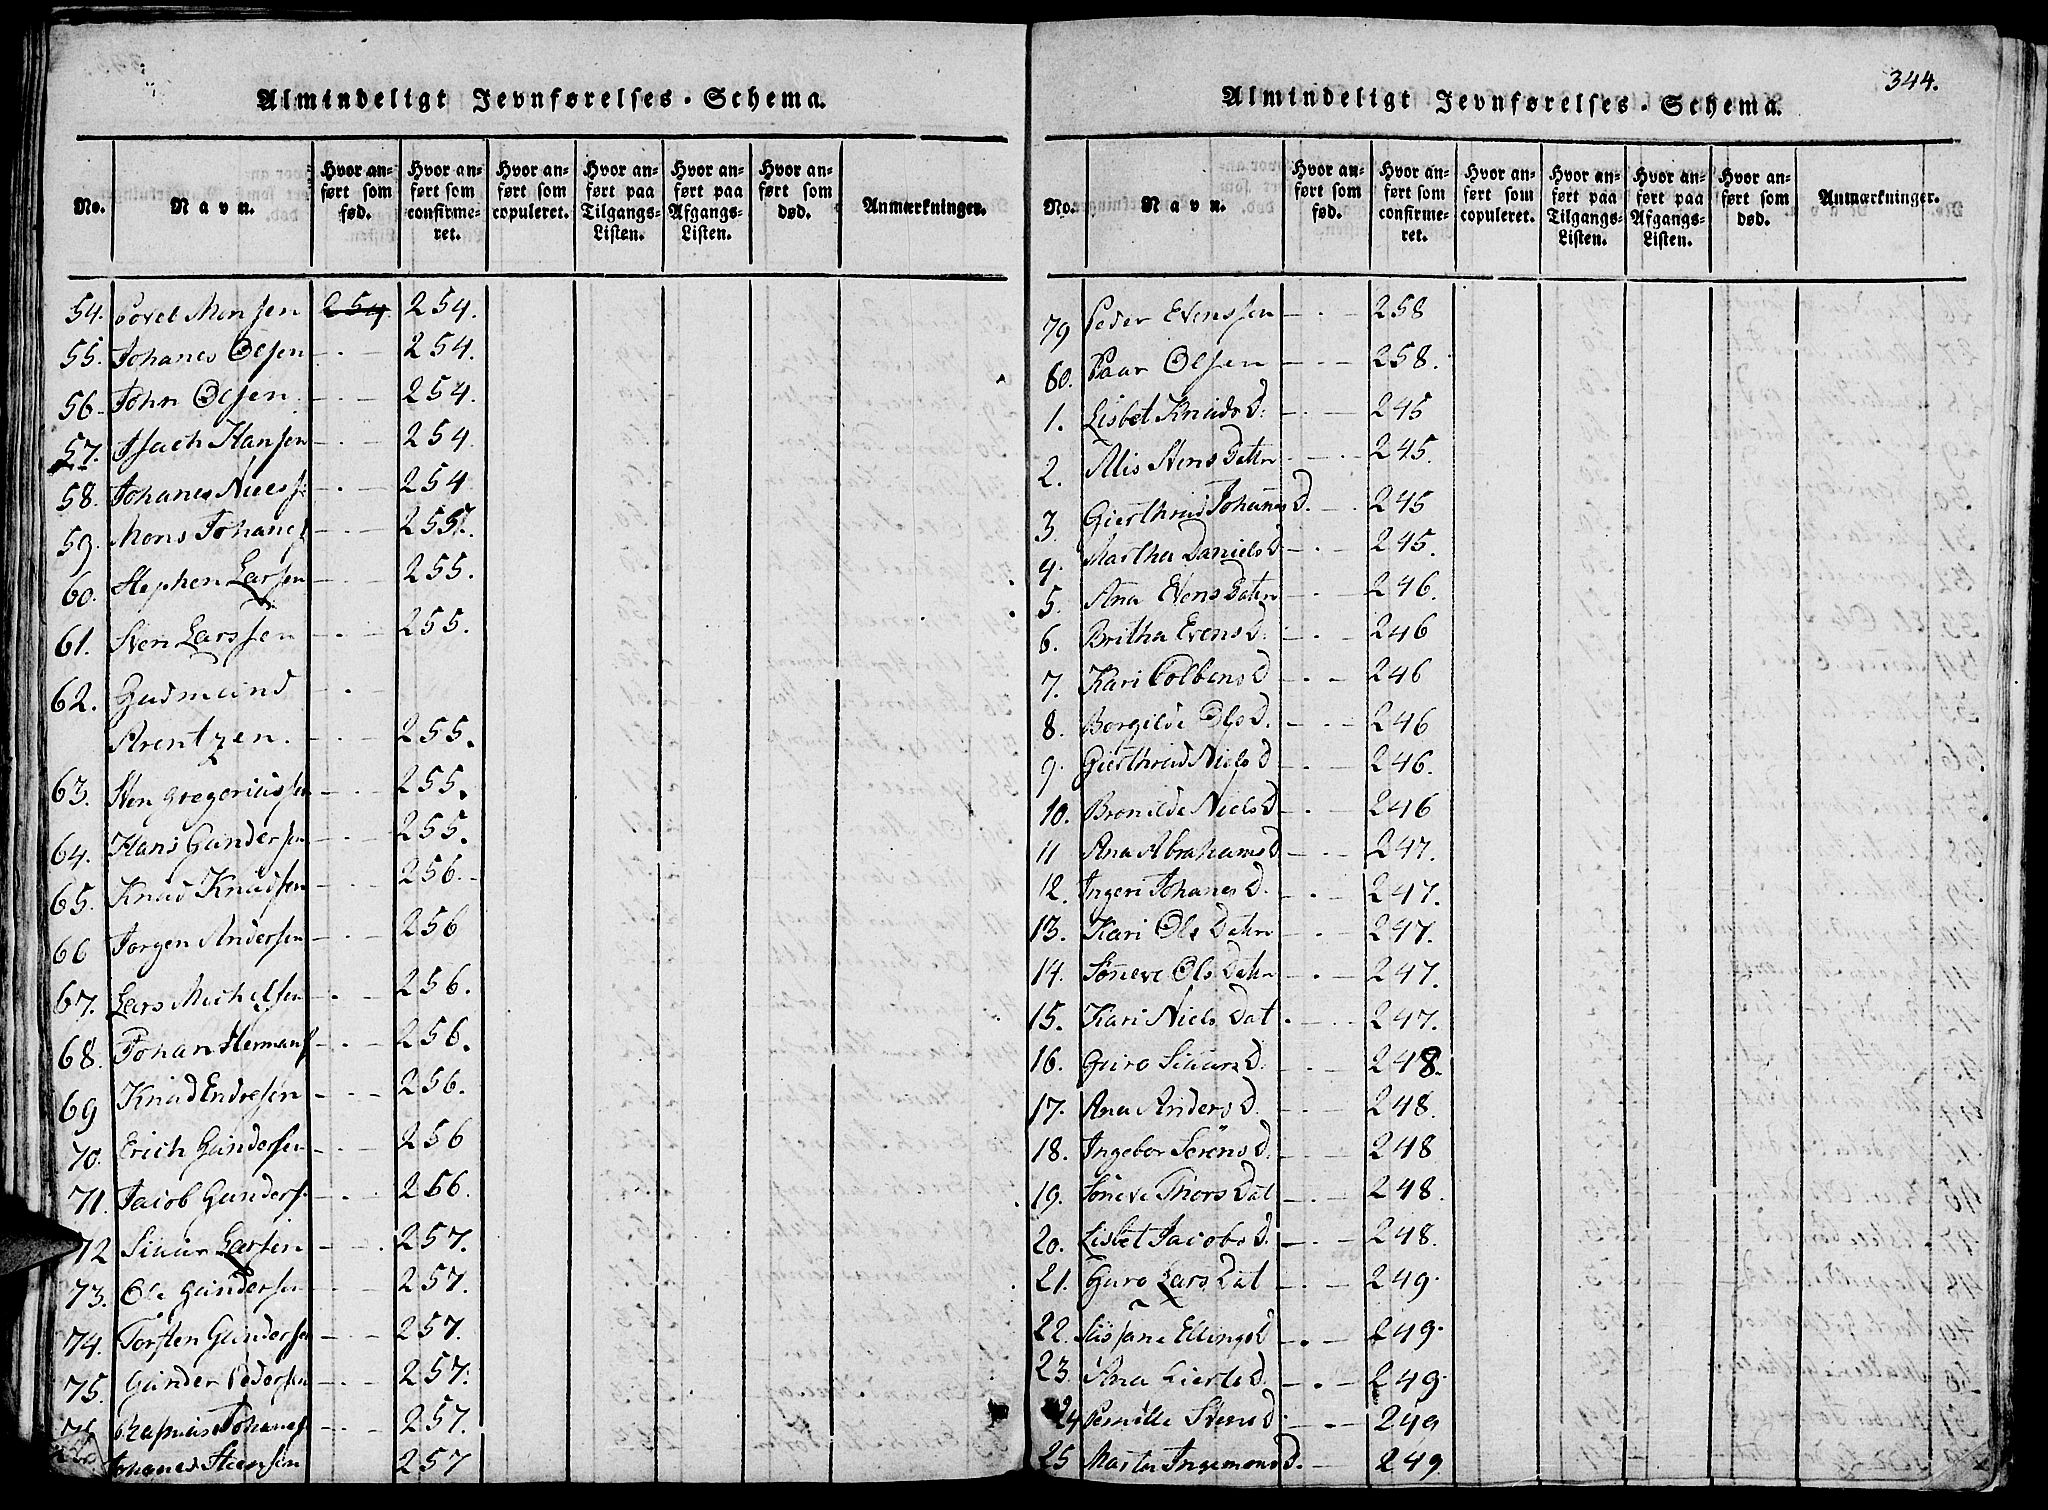 Almindeligt Jevnførelses-Schema.
No. Navn. Hvor anført som fød. Hvor anført som confirmeret. Hvor anført som copuleret. Hvor anført paa Tilgangs-Listen. Hvor anført paa Afgangs-Listen. Hvor anført som død. Anmærkninger.
54. Povel Monsen 254. 254.
55. Johanes Olsen 254.
56. John Olsen 254.
57. Isach Hansen 254.
58. Johanes Niels 254
59. Mons Johanes 255.
60. Stephen Larsen 255.
61. Sven Larssen 255.
62. Gudmund
Arentzen. 255.
63. Sven Gregoriussen 255.
64. Hans Gundersen 255.
65. Knud Knudsen 256.
66 Jørgen Andersen 256
67. Lars Michelsen 256.
68. Johan Hermans 256.
69 Knud Endresen 256.
70. Erich Gundersen 256
71. Jacob Gunders 256.
72 Siuur Larsen 257.
73. Ole Gundersen 257.
74. Torsten Gundersen 257.
75. Gunder Pedersen 257.
76 Rasmus Johanes 257.
Johanes Steensen 257
344.
Almindeligt Jevnførelses-Schema.
No. Navn. Hvor anført som fød. Hvor anført som confirmeret. Hvor anført som copuleret. Hvor anført paa Tilgangs-Listen. Hvor anført paa Afgangs-Listen. Hvor anført som død. Anmærkninger.
79 Peder Evenssen 258
80. Paar Olsen 258.
1. Lisbet Knuds D. 245
2. Alis Stens Datter 245.
3. Gierthrud Johanes D. 245
4. Martha Daniels D 245.
5. Ana Evens Datter 246.
6. Britha Evens D. 246
7. Kari Colbens D 246
8. Borgilde Ols D. 246
9. Gierthrud Niels D 246.
10. Bronilde Niels D. 246
11 Ana Abrahams D 247.
12. Ingeri Johanes D. 247.
13. Kari Ols Datter 247.
14. Søneve Ols Datter 247.
15. Kari Niels Dat 247.
16. Guro Siuurs D. 248.
17. Ana Anders D. 248.
18. Ingebor Sørens D. 248
19. Søneve Thors Dat 248.
20. Lisbet Jacobs D. 248.
21. Guro Lars Dat 249.
22. Susana Ellings D 249.
23. Ana Lierts D. 249.
24 Pernille Stens D. 249
25 Marta Ingemons D. 249